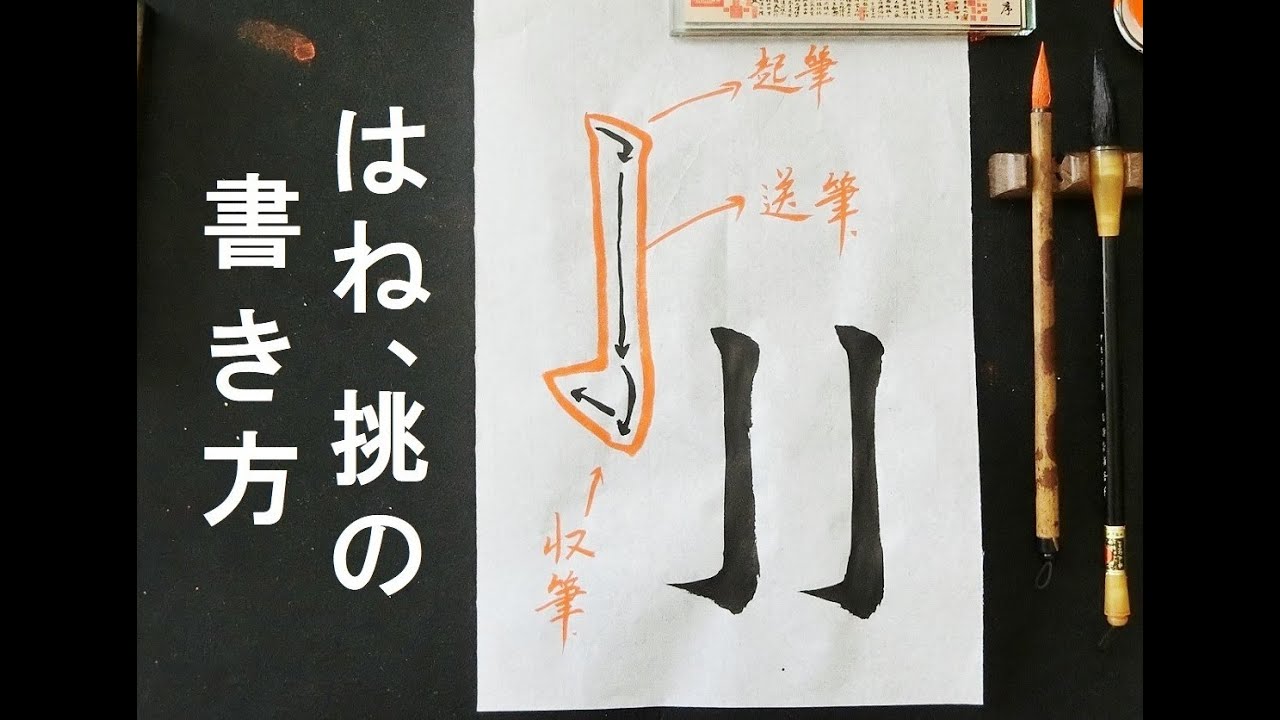 はね、挑の
書き方
起筆
送筆
収筆